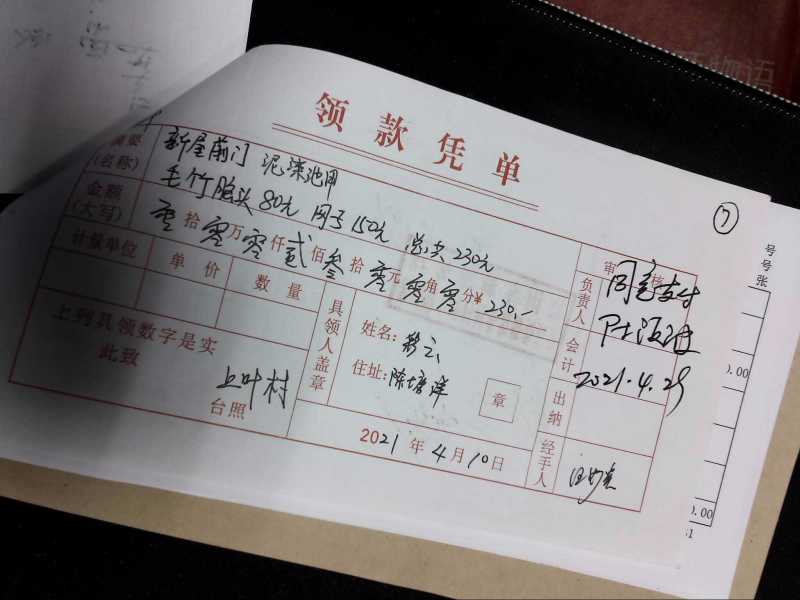 领款凭单
7
摘要
(名称)
新屋前门 泥漆池用
毛竹脑头80元 网子150元 总共230元
金额
(大写)
零拾零万零仟贰佰叁拾零元零角零分¥230.-
计量单位 单价 数量
上列具领数字是实
此致
上叶村
台照
具领人盖章
姓名:
住址:陈塘洋
章
2021年4月10日
审核
负责人
同意支付
2021.4.29
会计
出纳
经手人
物语
号
号
张
0.00
0.00